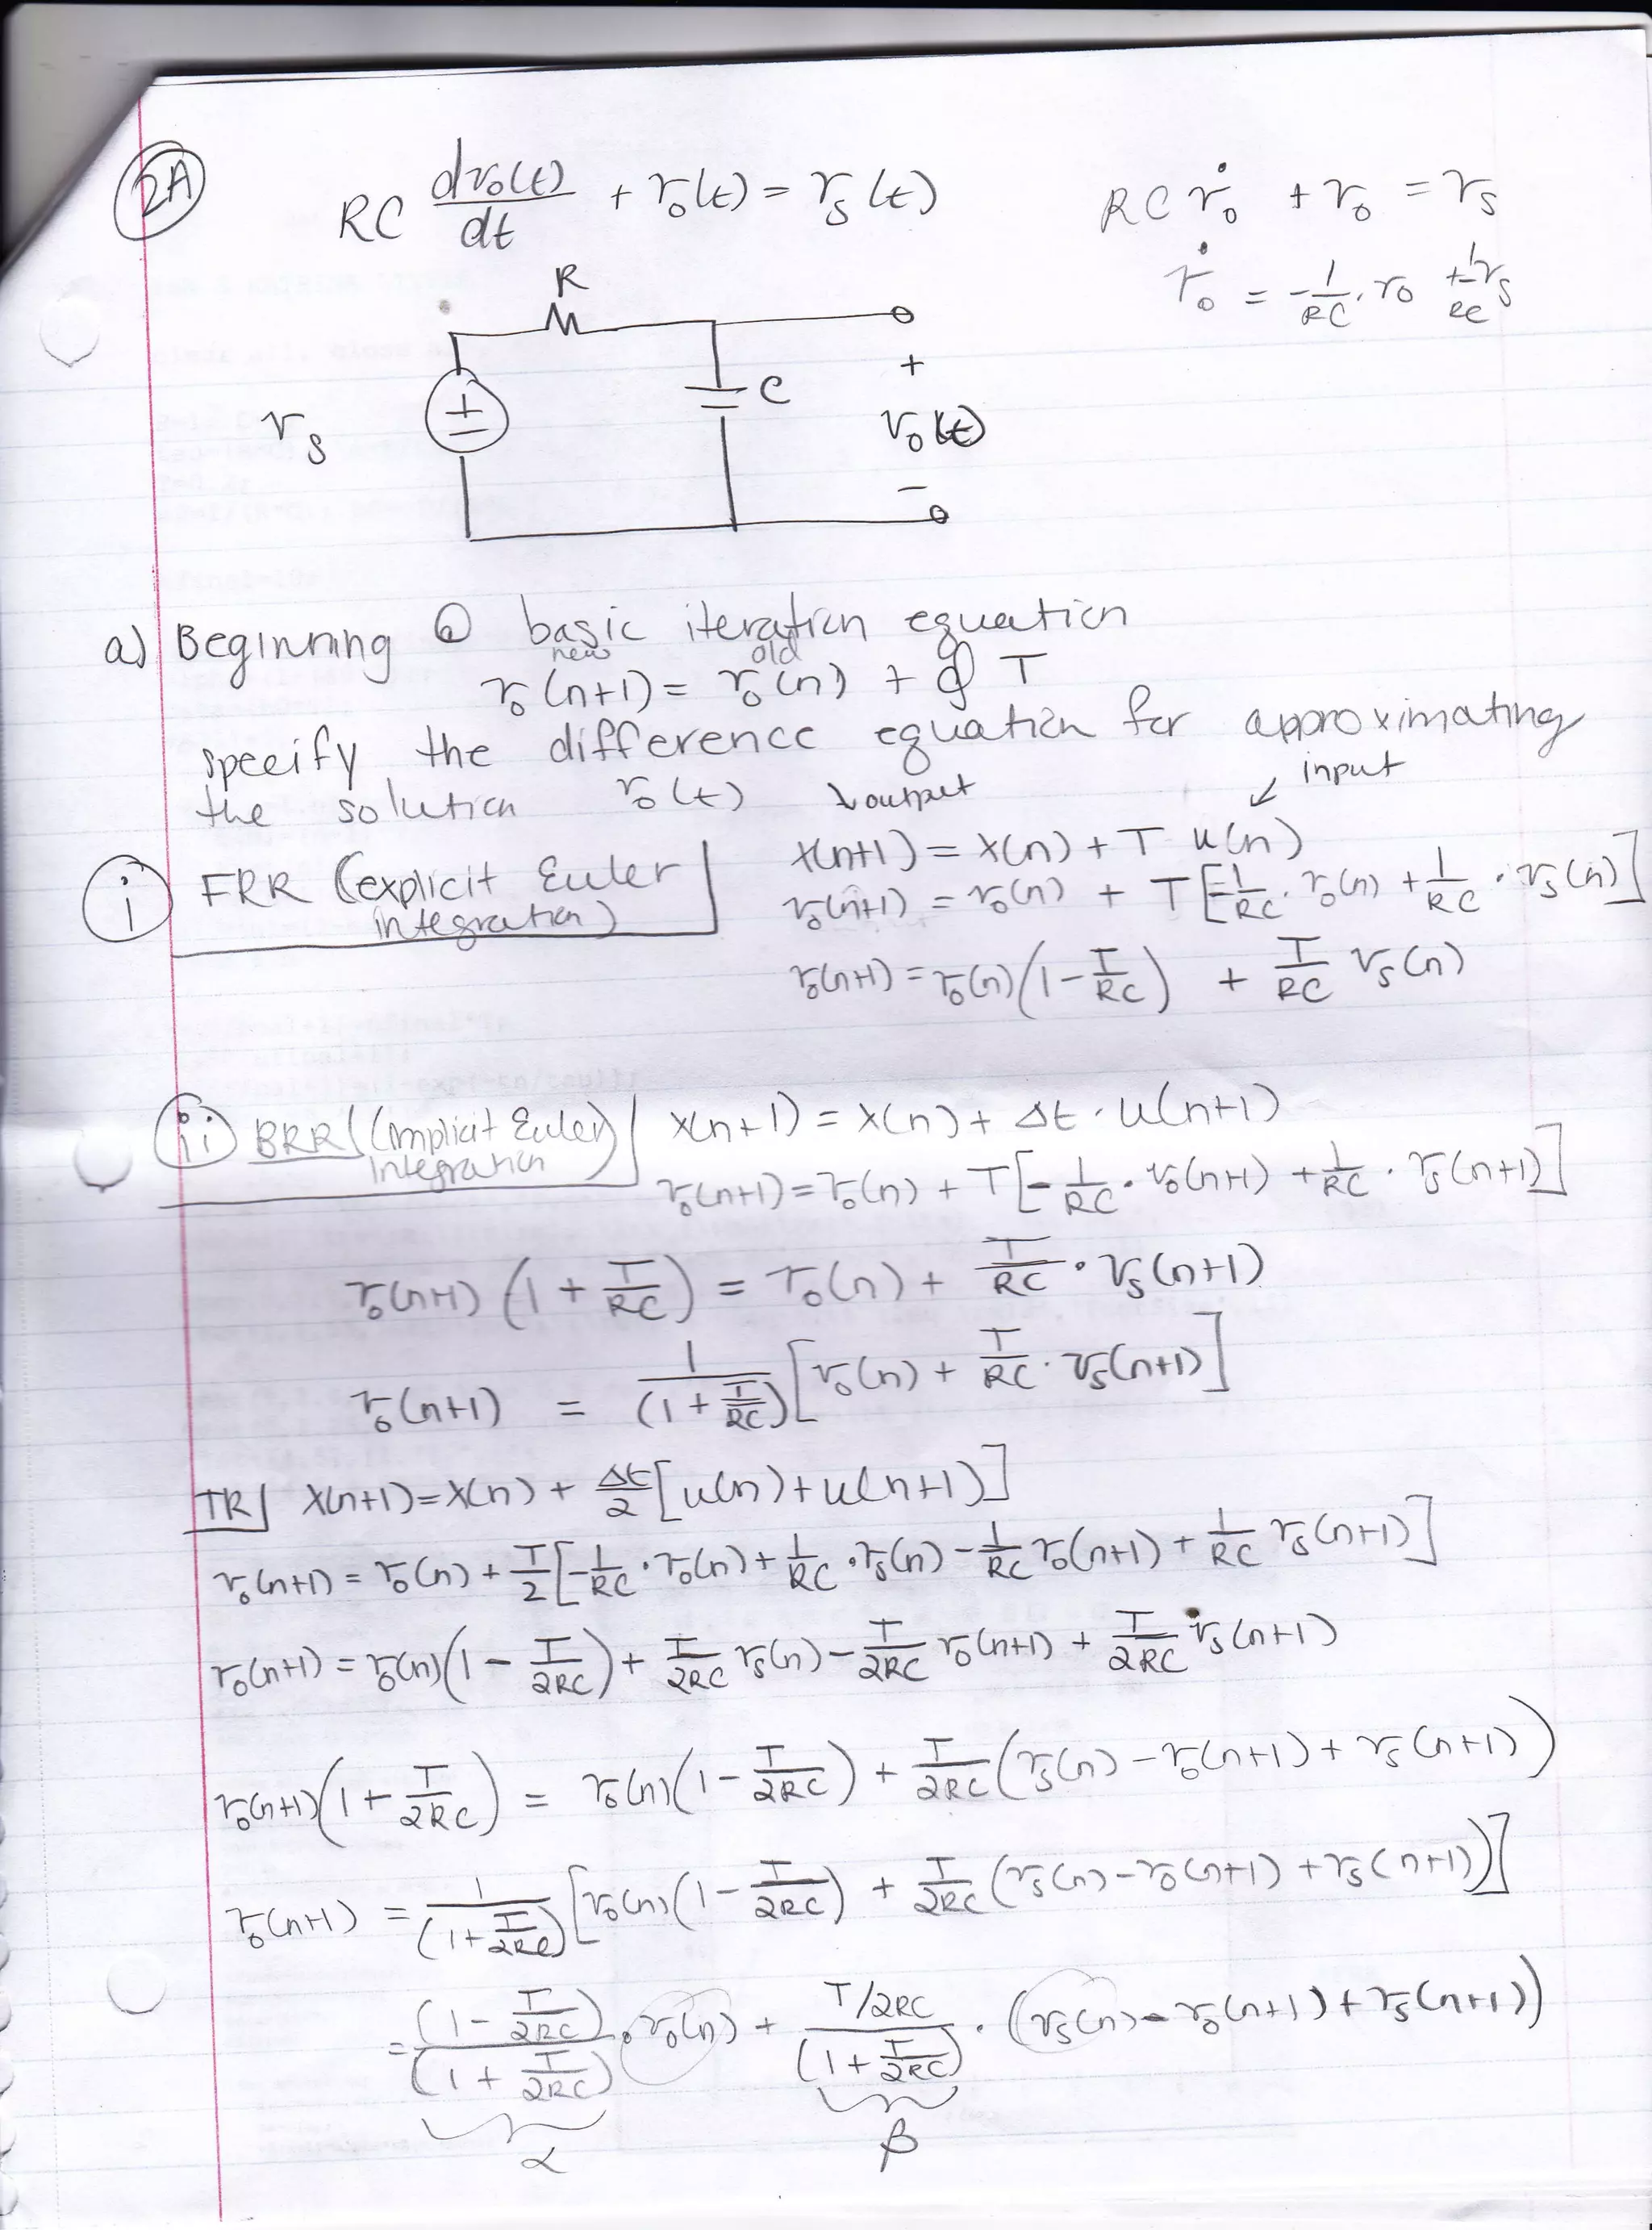 2A
RC dv₀(t)/dt + v₀(t) = vₛ(t)
RC v̇₀ + v₀ = vₛ
v̇₀ = -1/RC · v₀ + 1/RC vₛ
R
vₛ
+
-
C
+
v₀(t)
-
a) Beginning @ basic iteration equation
new old
v₀(n+1) = v₀(n) + ∮ T
specify the difference equation for approximating
the solution v₀(t)
↓output
↙ input
i FRR (explicit Euler
integration)
x(n+1) = x(n) + T u(n)
v₀(n+1) = v₀(n) + T[-1/RC · v₀(n) + 1/RC · vₛ(n)]
v₀(n+1) = v₀(n)(1 - T/RC) + T/RC vₛ(n)
ii BRR (Implicit Euler)
Integration
x(n+1) = x(n) + Δt · u(n+1)
v₀(n+1) = v₀(n) + T[-1/RC · v₀(n+1) + 1/RC · vₛ(n+1)]
v₀(n+1) (1 + T/RC) = v₀(n) + T/RC · vₛ(n+1)
v₀(n+1) = 1/(1 + T/RC) [v₀(n) + T/RC · vₛ(n+1)]
TR x(n+1) = x(n) + Δt/2 [u(n) + u(n+1)]
v₀(n+1) = v₀(n) + T/2 [-1/RC · v₀(n) + 1/RC · vₛ(n) - 1/RC v₀(n+1) + 1/RC vₛ(n+1)]
v₀(n+1) = v₀(n)(1 - T/2RC) + T/2RC vₛ(n) - T/2RC v₀(n+1) + T/2RC vₛ(n+1)
v₀(n+1)(1 + T/2RC) = v₀(n)(1 - T/2RC) + T/2RC (vₛ(n) - v₀(n+1) + vₛ(n+1))
v₀(n+1) = 1/(1 + T/2RC) [v₀(n)(1 - T/2RC) + T/2RC (vₛ(n) - v₀(n+1) + vₛ(n+1))]
= (1 - T/2RC)/(1 + T/2RC) · v₀(n) + T/2RC/(1 + T/2RC) · (vₛ(n) - v₀(n+1) + vₛ(n+1))
α β